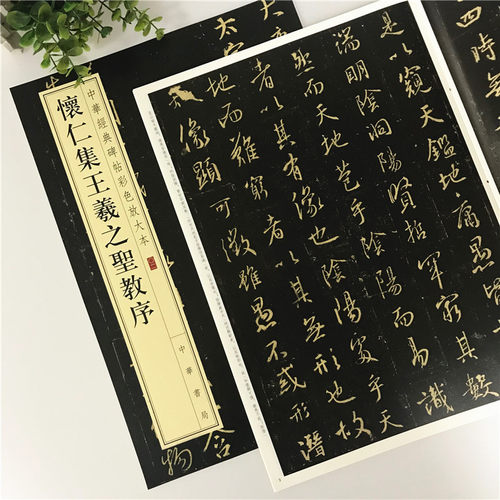 中華經典碑帖彩色放大本
懷仁集王羲之聖教序
中華書局
四時
是以窺天鑑地庸愚
端明陰洞陽賢哲罕窮其數
然而天地苞乎陰陽而易識
者以其有像也陰陽處乎天
地而難窮者以其無形也故
像顯可徵雖愚不惑形潛
太
含
物